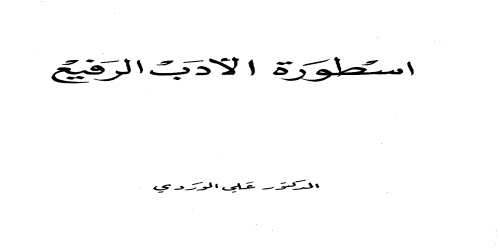 اسطورة الأدب الرفيع
الدكتور علي الوردي